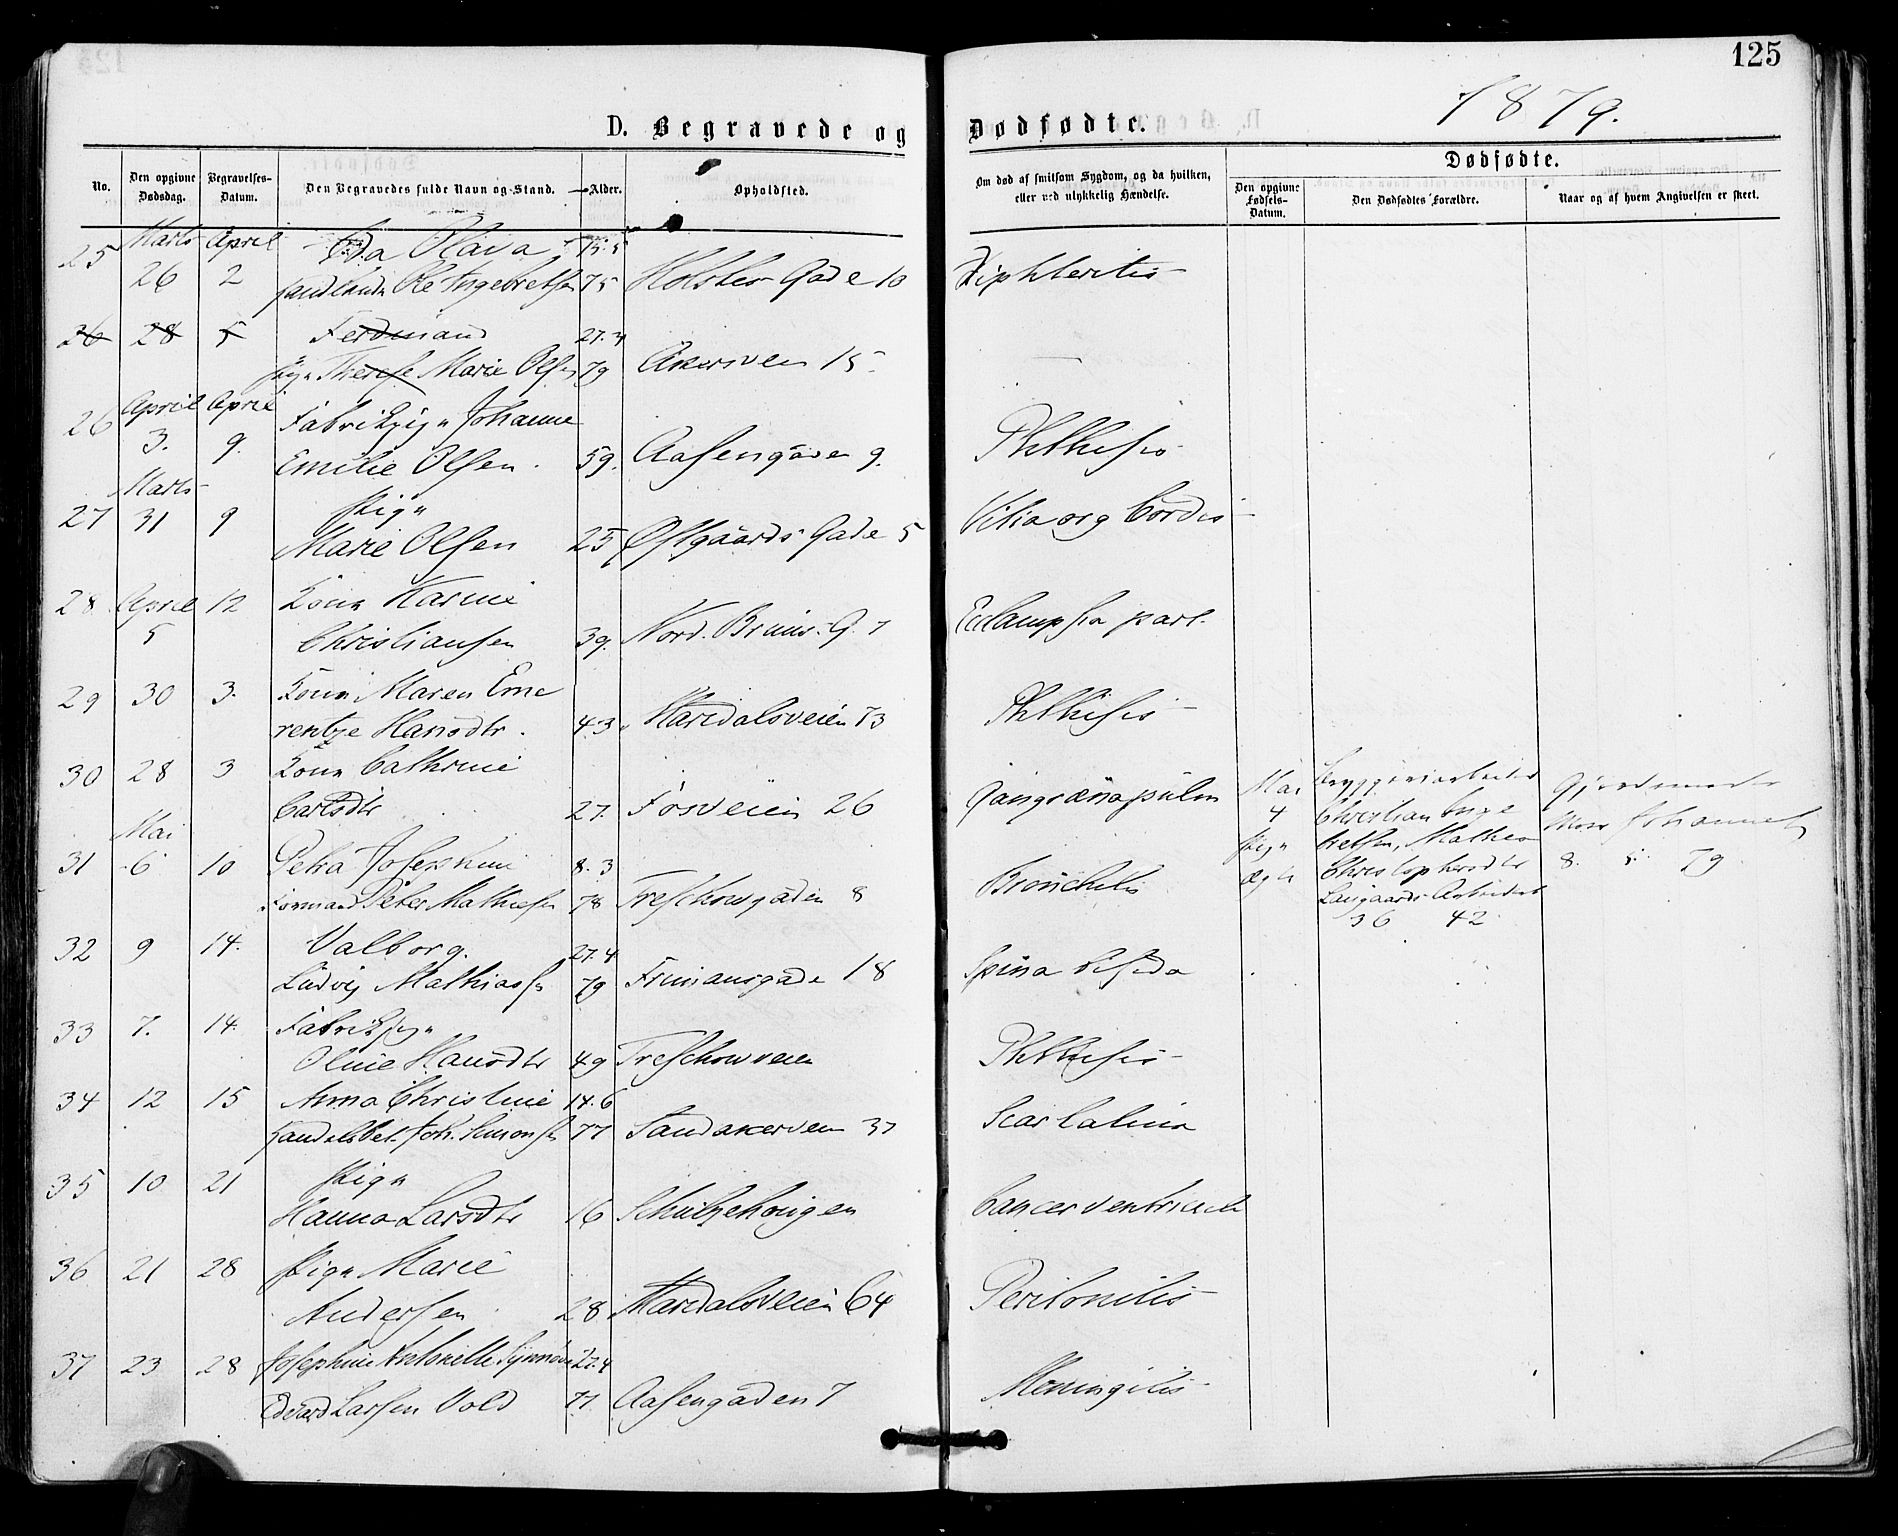 125
1879.
D. Begravede og Dødfødte.
No. Den opgivne Dødsdag. Begravelses-Datum. Den Begravedes fulde Navn og Stand. Alder. Opholdsted. Om død af smitsom Sygdom, og da hvilken, eller ved ulykkelig Hændelse. Dødfødte. Den opgivne Fødsels-Datum. Den Dødfødtes Forældre. Naar og af hvem Angivelsen er skeet.
25 Marts April Olava 15.5
26 2 Ole Ingebretsen 75 Holsts Gade 10 Diphteritis
26 28 5 Ferdinand 27.3
Pige Therese Marie Olsen 79 Akersveien 15
26 April April Fabrikpige Johanne
3. 9. Emilie Olsen. 59. Aasengaden 9. Phthisis
27 Marts Pige
31 9 Marie Olsen 25 Østgaards Gade 5 Vitia org Cordis
28 April 12 Kone Karine
5 Christiansen 39. Nord. Bruns. G. 7 Eclampsia part.
29 30 3. Kone Maren Eme
rentze Hansdtr. 43 Maridalsveien 73 Phthisis
30 28 3 Kone Cathrine
Carlsdtr 27. Fosveien 26 Gangræna pulm
Mai 4 Bryggeriarbeider Christian Inge
bretsen, Mathea
Christophersdtr
36 42
Gjordemoder
Johannes
8. 5. 79
Mai
31 6 10 Petra Josephine 8.3
Formand Peter Mathiesen 78 Treschowsgaden 8 Bronchitis
32 9 14. Valborg. 27.4
Ludvig Mathiass 79 Frimansgade 18 Spina bifida
33 7. 14. Fabrikpige
Oline Hansdtr 49 Treschowveien Phthisis
34 12 15 Anna Christine 14.6
Handelsbet. Joh. Simonsen 77 Sandakerveien 37 Scarlatina
35 10 21 Pige
Hanna Larsdtr 16 Schultzehougen Cancer ventricul
36 21 28 Pige Marie
Andersen 28 Maridalsveien 64 Peritonitis
37 23 28 Josephine Antonette Synnøve 27.4
Edvard Larsen Vold 77 Aasengaden 7 Meningitis